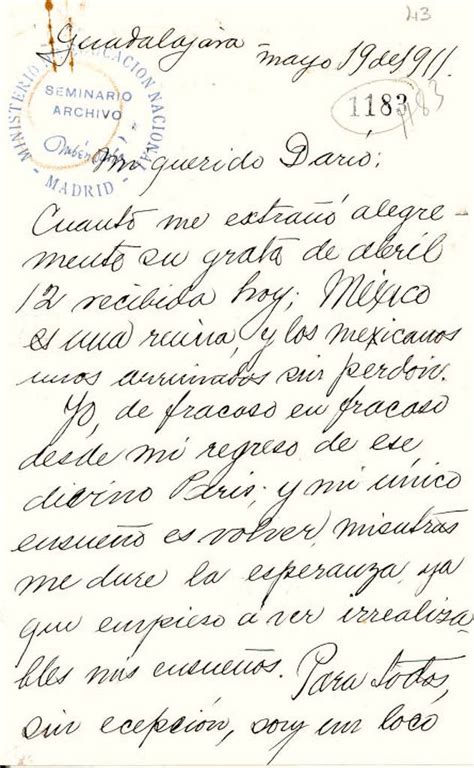 43
Guadalajara
mayo 19 de 1911.
MINISTERIO DE EDUCACION NACIONAL
SEMINARIO
ARCHIVO
Rubén Darío
- MADRID -
1183
1183
Mi querido Darió:
Cuantó me extrañó alegre-
mente su grata de abril
12 recibida hoy; México
es una ruina, y los mexicanos
unos arruinados sin perdón.
Yo, de fracaso en fracaso
desde mi regreso de ese
divino Paris; y mi único
ensueño es volver, mientras
me dure la esperanza, ya
que empieso á ver irrealiza-
bles mis ensueños. Para todos,
sin ecepción, soy un loco